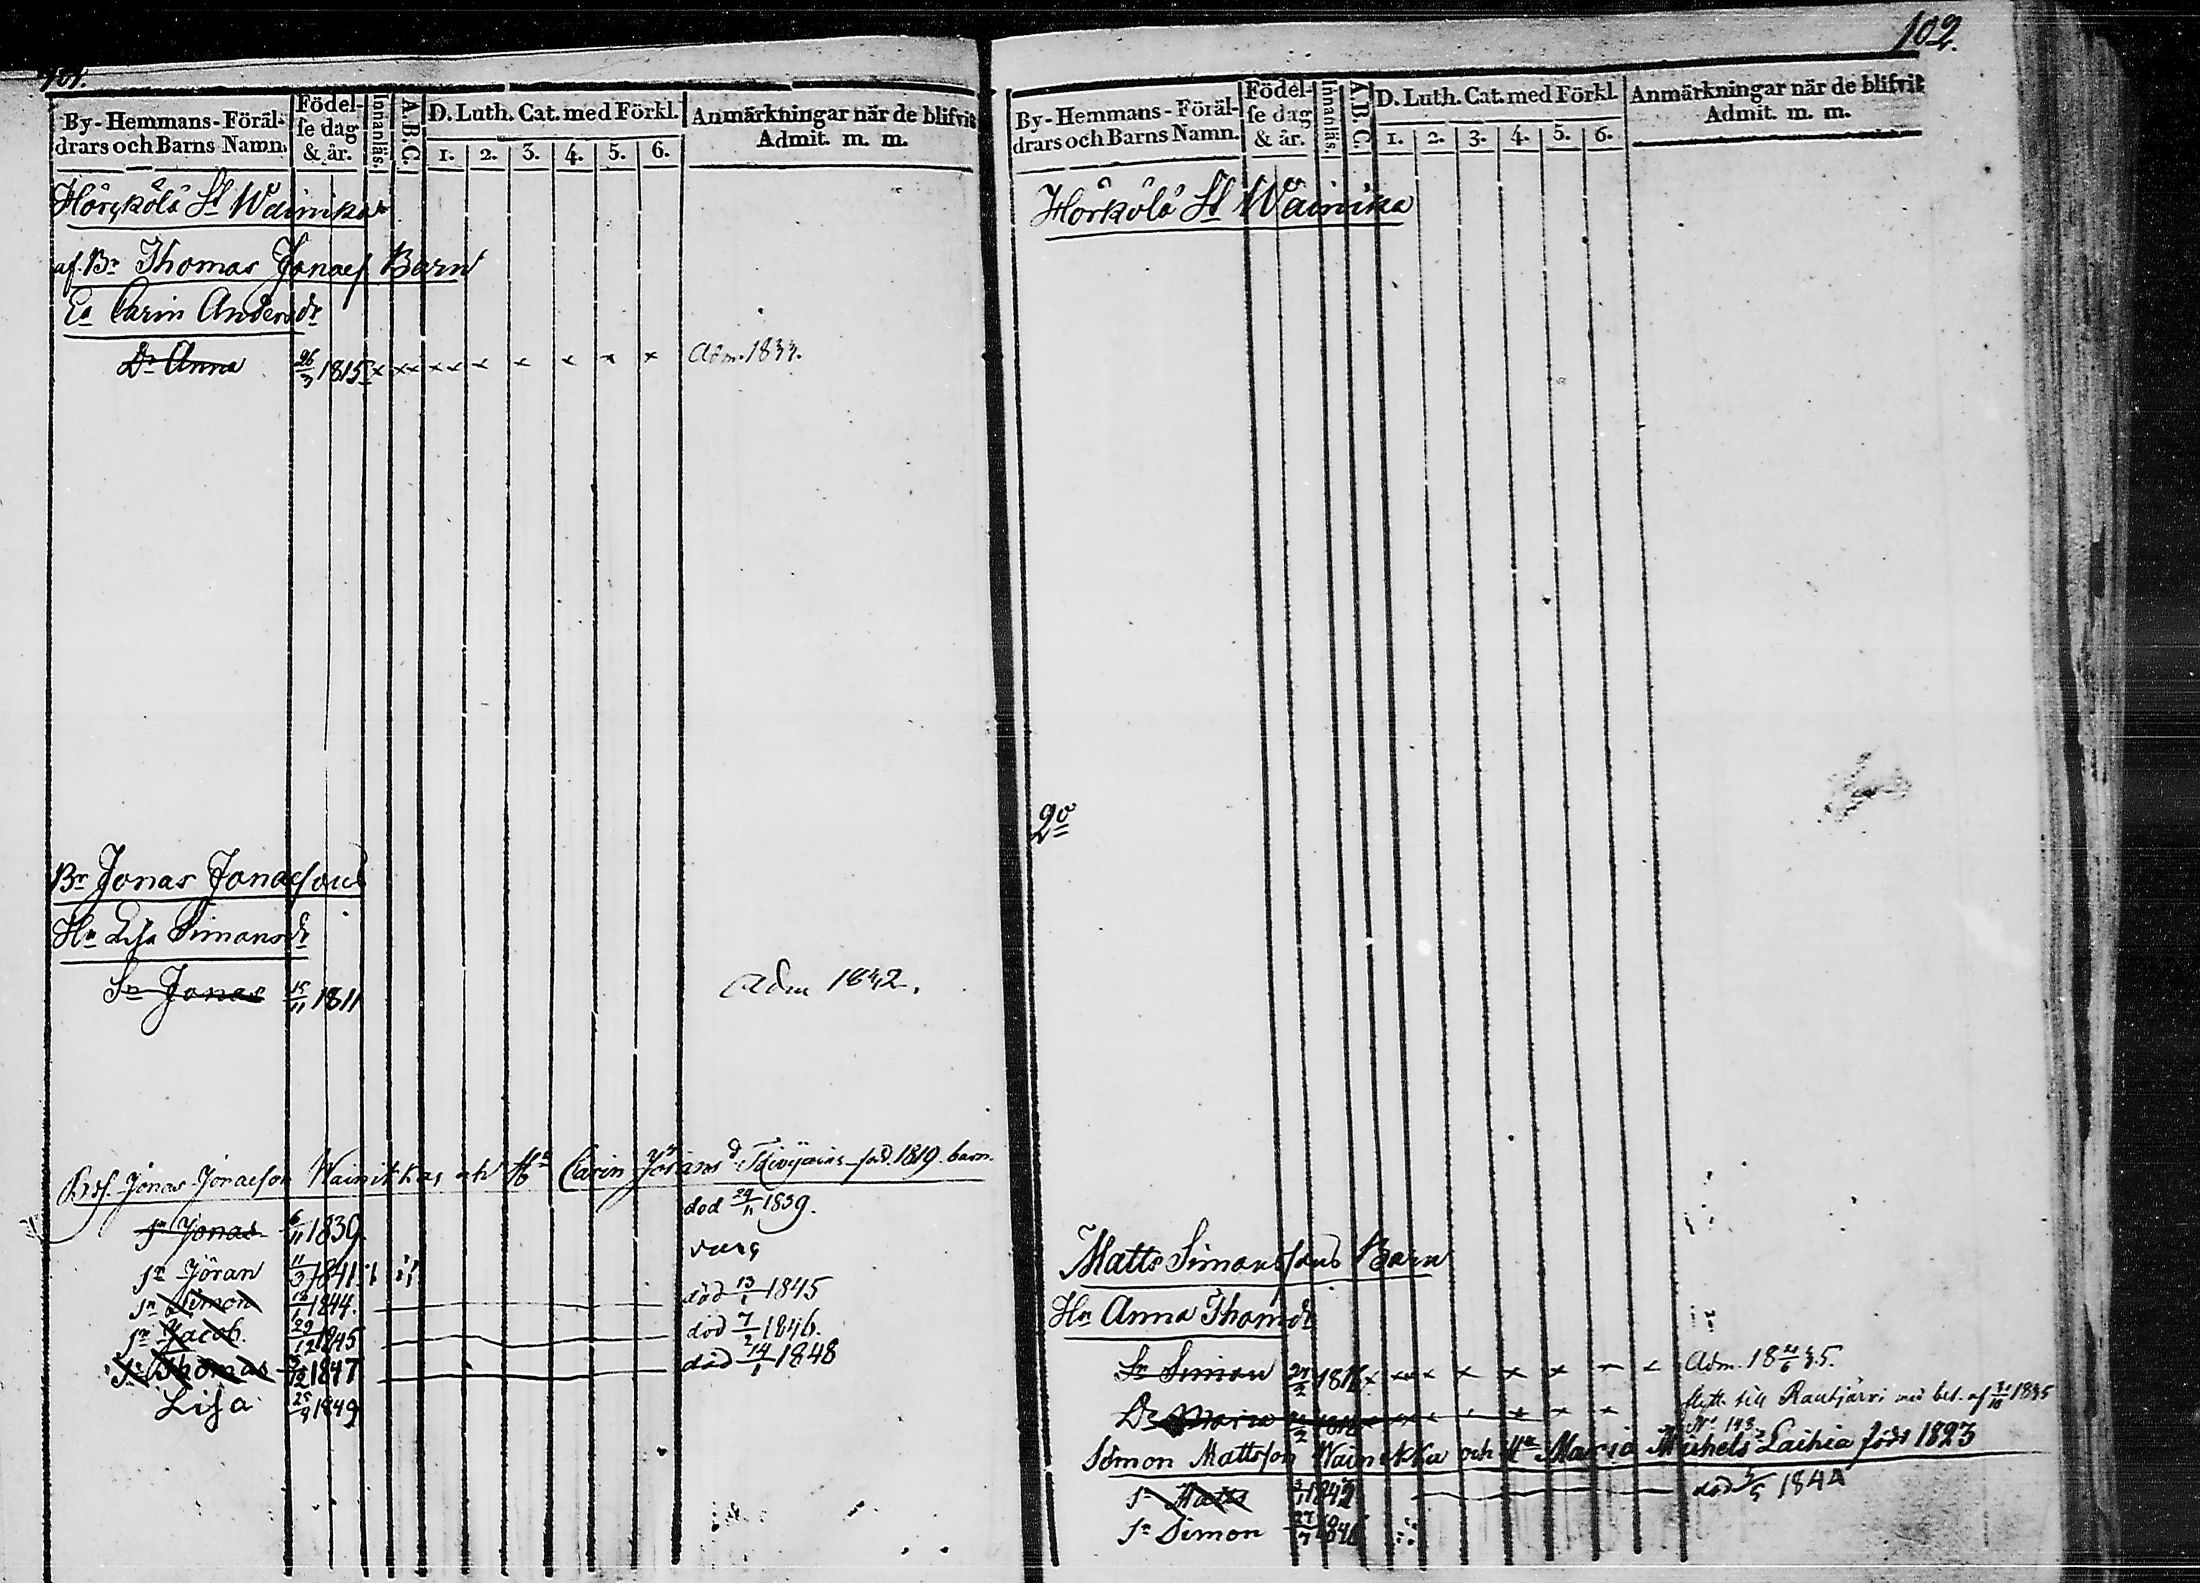 101.
By-Hemmans-Föräl-
drars och Barns Namn.
Födel-
se dag
& år.
Innanläs.
A.B.C.
D. Luth. Cat. med Förkl.
1. 2. 3. 4. 5. 6.
Anmärkningar när de blifvit
Admit. m. m.
Wäinika
af. Br Thomas Jonaes Barn
Ea Carin Andersdr
Dr Anna 26/3 1815 x xx xx x x x x x Adm. 1833.
Br Jonas Jonaesons
Hu Lisa Simonsdr
Sn Jonas 15/11 1811 Adm 1832.
Jonas Jonaeson Wainikka och Hu Carin föd. 1819. barn.
Sn Jonas 6/11 1839. död 29/11 1839.
Sn Jöran 11/3 1841 vacc
Sn Simon 1844. död 13/1 1845
Sn Jacob. 29/12 1845 död 7/2 1846.
Sn Thomas 1847 död 14/1 1848
Lisa 25/9 1849
102.
By-Hemmans-Föräl-
drars och Barns Namn.
Födel-
se dag
& år.
Innanläs.
A.B.C.
D. Luth. Cat. med Förkl.
1. 2. 3. 4. 5. 6.
Anmärkningar när de blifvit
Admit. m. m.
Hörkölä Sl Wäinika
2o
Matts Simonssons Barn
Hu Anna Thomdr
Sn Simon x xx x x x x x x Adm. 18 6 35.
Dr Maria flytt. till Rautjärvi med bet. af 1835
No 143
Simon Mattsson Wainikka och Hu Maria Michelsdr Laihia född 1823
Sn Matts 1842 död 184
Sn Simon 27/7